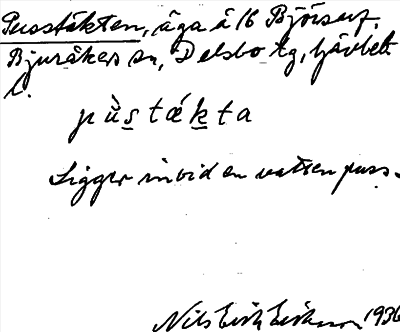 Pusstäkten, äga å 16 Björsarf.
Bjuråkers sn, Delsbo tg, Gävleb.
l.
pu̇̀s̲tǽk̲ta
Ligger invid en vatten puss.
Nils Erik Eriksson 1936